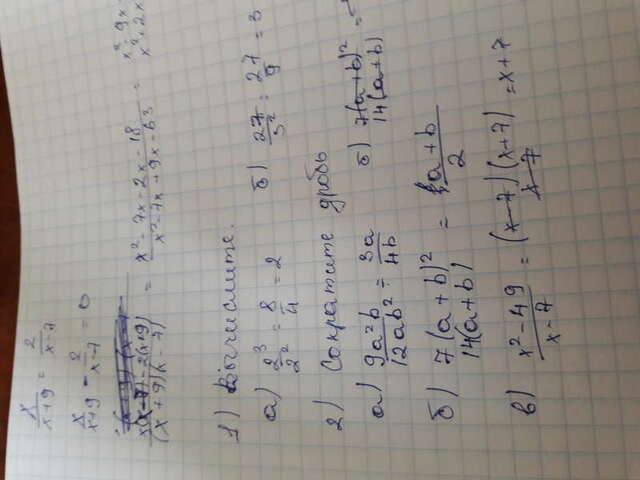 x/(x+9) = 2/(x-7)
x/(x+9) - 2/(x-7) = 0
(x(x-7)-2(x+9))/((x+9)(x-7)) = (x²-7x-2x-18)/(x²-7x+9x-63) = (x²-9x-)/(x²+2x)
1) Вычислите.
а) 2³/2² = 8/4 = 2 б) 27/3² = 27/9 = 3
2) Сократите дробь
а) 9a²b/12ab² = 3a/4b б) 7(a+b)²/14(a+b) =
б) 7(a+b)²/14(a+b) = (a+b)/2
в) (x²-49)/(x-7) = (x-7)(x+7)/(x-7) = x+7